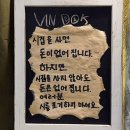 VIN DOS
시집을 사면
돈이 없어집니다.
하지만
시집을 사지 않아도
돈은 없어집니다.
여러분
시를 포기하지 마세요.